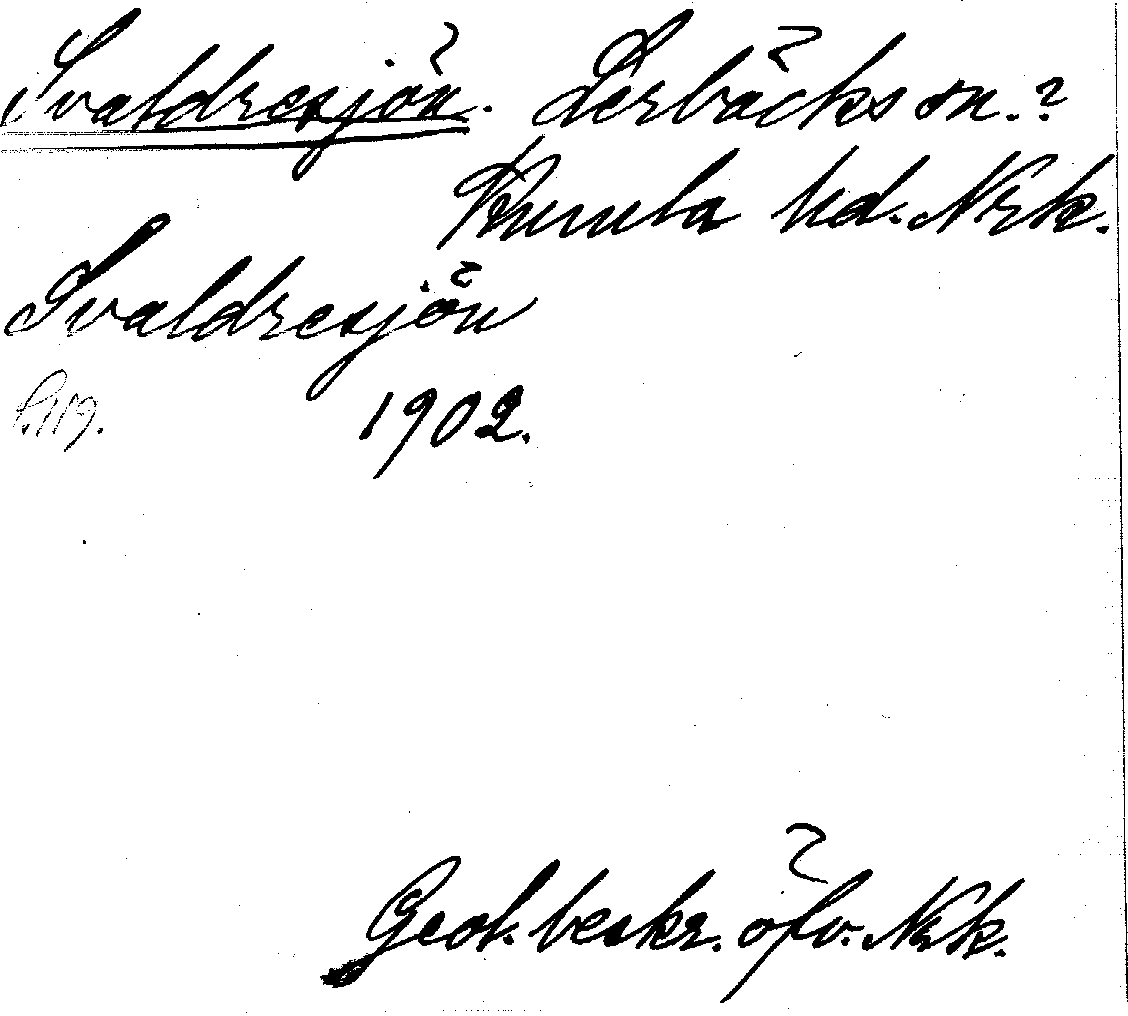 Svaldresjön. Lerbäcks sn.?
Kumla hd. Nrk.
Svaldresjön
S. 119. 1902.
Geol. beskr. öfv. Nrk.